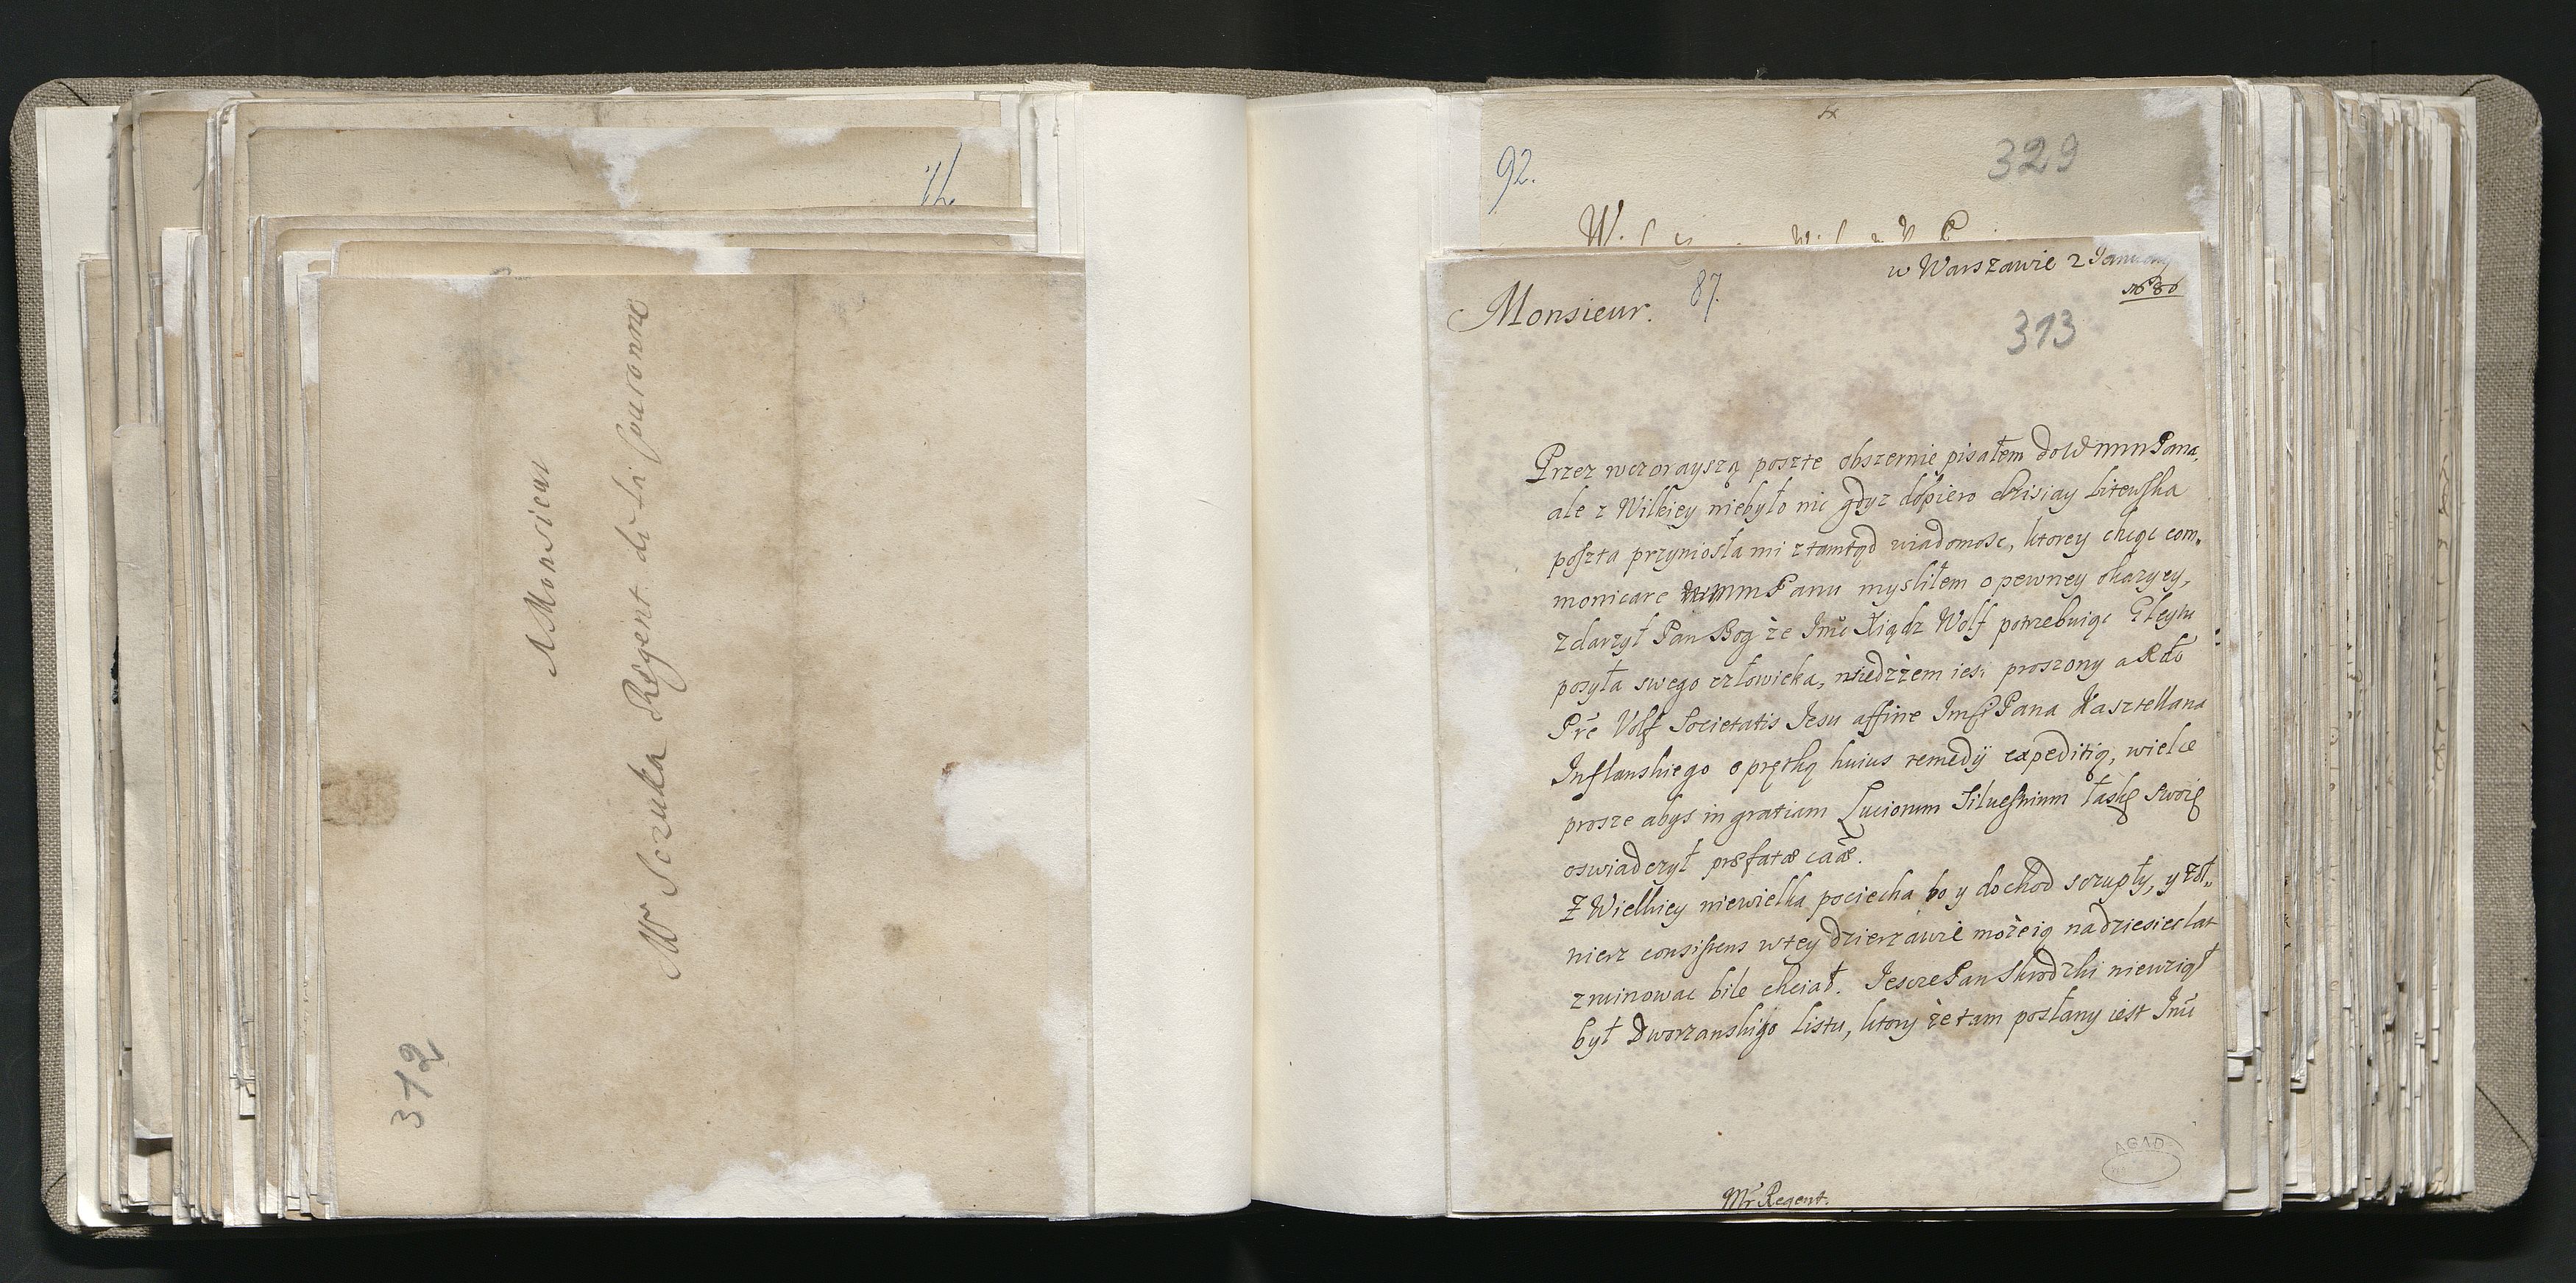 A Monsieur
Mr Sczuka Régent de la Couronne
312
92.
329
w Warszawie 2 January
1686
Monsieur.
87.
313
Przez wczorayszą poszte obszernie pisałem do WMMPana,
ale z Wilkiey niebyło nic gdyz dopiero dzisiay Litewska
poszta przyniosła mi ztamtąd wiadomosc, ktorey chcąc com„
monicare WMMPanu mysliłem o pewney okazyey,
zdarzył Pan Bog że Imć Xiądz Wolf potrzebuiąc Gleytu
posyła swego człowieka, proszony a Rdo
Pre Volf Societatis Jesu affine ImśP Pana Kasztellana
Inflanskiego o prętką huius remedÿ expeditią, wielce
prosze abys in gratiam Luciorum Siluestrium łaskę swoię
oswiadczył præfatæ caæ.
Z Wielkiey niewielka pociecha bo y dochod sczupły, y żoł„
nierz consistens wtey dzierzawie możeią nadziesięclat
zruinowac bile chciał. Iescze Pan Skrodzki niewziął
był Dworzanskigo listu, ktory że tam posłany iest Imć
Mr Regent.
AGAD